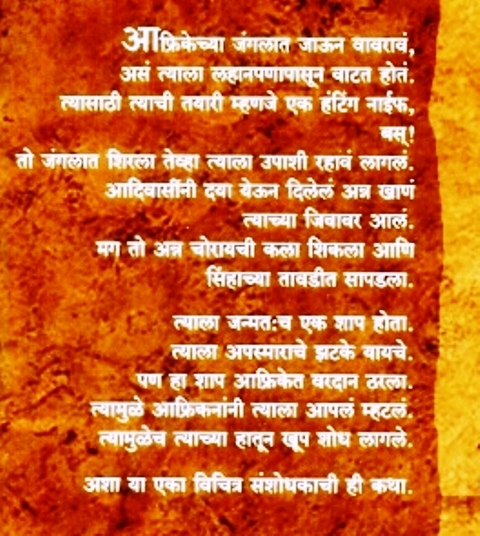 आफ्रिकेच्या जंगलात जाऊन वावरावं,
असं त्याला लहानपणापासून वाटत होतं.
त्यासाठी त्याची तयारी म्हणजे एक हंटिंग नाईफ,
बस्!
तो जंगलात शिरला तेव्हा त्याला उपाशी रहावं लागलं.
आदिवासींनी दया येऊन दिलेलं अन्न खाणं
त्याच्या जिवावर आलं.
मग तो अन्न चोरायची कला शिकला आणि
सिंहाच्या तावडीत सापडला.
त्याला जन्मतःच एक शाप होता.
त्याला अपस्माराचे झटके यायचे.
पण हा शाप आफ्रिकेत वरदान ठरला.
त्यामुळे आफ्रिकनांनी त्याला आपलं म्हटलं.
त्यामुळेच त्याच्या हातून खूप शोध लागले.
अशा या एका विचित्र संशोधकाची ही कथा.